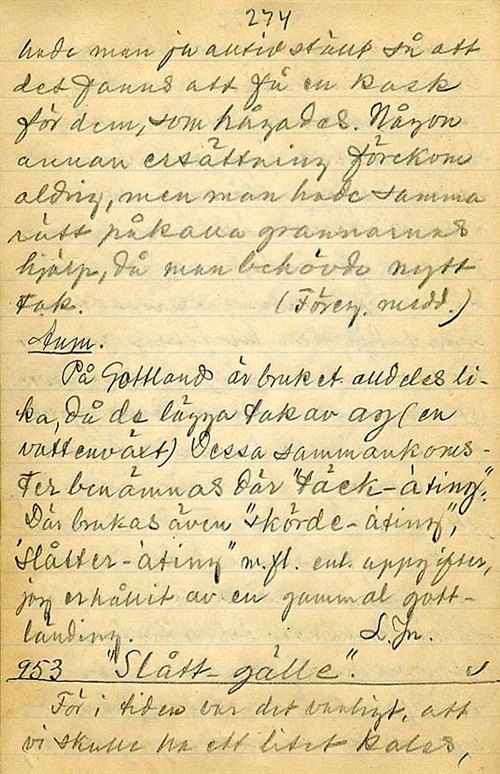 274
hade man ju alltid stäut så att
det fanns att få en kask
för dem, som hågades. Någon
annan ersättning förekom
aldrig, men man hade samma
rätt påkalla grannarnas
hjälp, då man behövde nytt
tak. (Föreg. medd.)
Anm.
På Gottland är bruket alldeles li-
ka, då de lägga tak av ag (en
vattenväxt) Dessa sammankoms-
ter benämnas där "täck-åting".
Där brukas även "skörde-åting",
"slåtter-åting" m.fl. enl. uppgifter,
jag erhållit av en gammal gott-
länding. L. Jn.
953 "Slått-gälle".
För i tiden var det vanligt, att
vi skulle ha ett litet kalas,